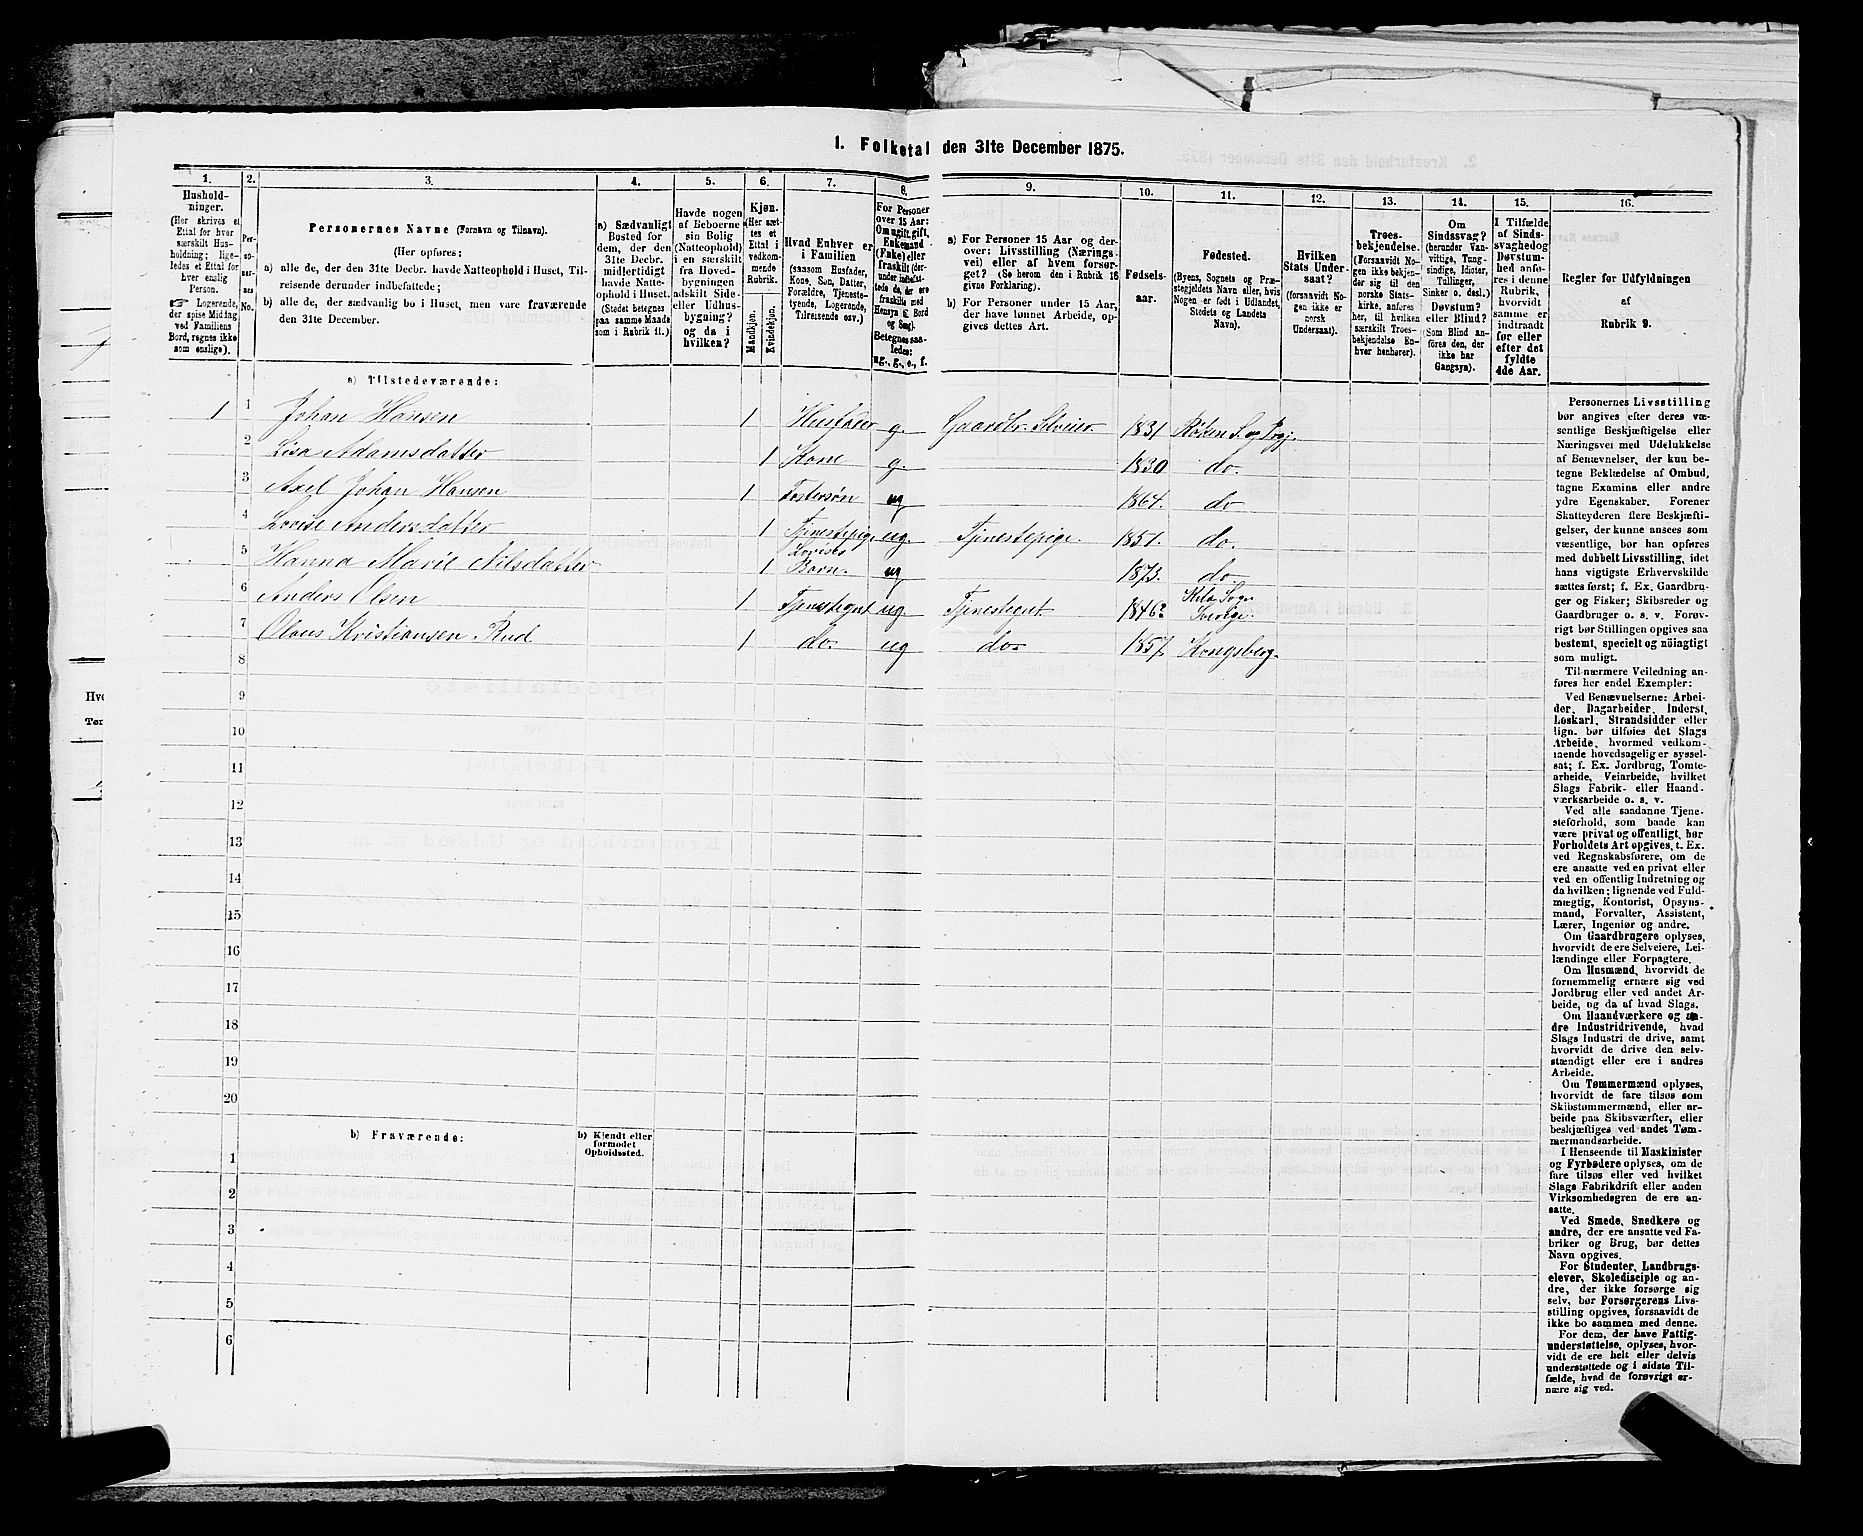 1. Folketal den 31te December 1875.
1. 2. 3. 4. 5. 6. 7. 8. 9. 10. 11. 12. 13. 14. 15. 16.
Hushold-
ninger.
(Her skrives et
Ettal for hver
særskilt Hus-
holdning; lige-
ledes et Ettal for
hver enslig
Person.
☞ Logerende,
der spise Middag
ved Familiens
Bord, regnes ikke
som enslige).
Per-
so-
ner-
nes
No.
Personernes Navne (Fornavn og Tilnavn).
(Her opføres:
a) alle de, der den 31te Decbr. havde Natteophold i Huset, Til-
reisende derunder indbefattede;
b) alle de, der sædvanlig bo i Huset, men vare fraværende
den 31te December.
a) Sædvanligt
Bosted for
dem, der den
31te Decbr.
midlertidigt
havde Natte-
ophold i Huset.
(Stedet betegnes
paa samme Maade
som i Rubrik 11.)
Havde nogen
af Beboerne
sin Bolig
(Natteophold)
i en særskilt
fra Hoved-
bygningen
adskilt Side-
eller Udhus-
bygning?
og da i
hvilken?
Kjøn.
(Her sæt-
tes et
Ettal i
vedkom-
mende
Rubrik.
Mandkjøn.
Kvindekjøn.
Hvad Enhver er
i Familien
(saasom Husfader,
Kone, Søn, Datter,
Forældre, Tjeneste-
tyende, Logerende,
Tilreisende osv.)
For Personer
over 15 Aar:
Om ugift, gift,
Enkemand
(Enke) eller
fraskilt (der-
under indbefat-
tede de, der ere
fraskilte med
Hensyn til Bord
og Seng).
Betegnes saa-
ledes:
ug., g., e., f.
a) For Personer 15 Aar og der-
over: Livsstilling (Nærings-
vei) eller af hvem forsør-
get? (Se herom den i Rubrik 16
givne Forklaring).
b) For Personer under 15 Aar,
der have lønnet Arbeide, op-
gives dettes Art.
Fødsels-
aar.
Fødested.
(Byens, Sognets og Præ-
stegjeldets Navn eller, hvis
Nogen er født i Udlandet,
Stedets og Landets
Navn).
Hvilken
Stats Under-
saat?
(forsaavidt No-
gen ikke er
norsk
Undersaat).
Troes-
bekjendelse.
(Forsaavidt No-
gen ikke bekjen-
der sig til den
norske Stats-
kirke, anføres
her, til hvilken
særskilt Troes-
bekjendelse En-
hver henhører).
Om
Sindssvag?
(herunder Van-
vittige, Tung-
sindige, Idioter,
Tullinger,
Sinker o. desl.)
Døvstum?
eller Blind?
(Som Blind an-
føres den, der
ikke har
Gangsyn).
I Tilfælde
af Sinds-
svaghed og
Døvstum-
hed anfø-
res i denne
Rubrik,
hvorvidt
samme er
indtraadt
før eller
efter det
fyldte
4de Aar.
Regler for Udfyldningen
af
Rubrik 9.
a) Tilstedeværende:
1 1 Johan Hansen 1 Husfader g. Gaardbr. Selveier. 1831 Røken S. og Prgj.
2 Lisa Adamsdatter 1 Kone g. 1830 do.
3 Axel Johan Hansen 1 Fostersøn ug 1864. do
4 Lovise Andersdatter 1 Tjenestepige ug. Tjenestepige. 1851. do.
5 Hanna Marie Nilsdatter 1 Lovises Barn. ug 1873. do
6 Anders Olsen 1 Tjenestegut ug Tjenestegut. 1846? Sogn Sverige.
7 Olaus Kristiansen Rud 1 do. ug do. 1857. Kongsberg.
8
9
10
11
12
13
14
15
16
17
18
19
20
b) Fraværende:
b) Kjendt eller
formodet
Opholdssted.
1
2
3
4
5
6
Personernes Livsstilling
bør angives efter deres væ-
sentlige Beskjæftigelse eller
Næringsvei med Udelukkelse
af Benævnelser, der kun be-
tegne Beklædelse af Ombud,
tagne Examina eller andre
ydre Egenskaber. Forener
Skatteyderen flere Beskjæfti-
gelser, der kunne ansees som
væsentlige, bør han opføres
med dobbelt Livsstilling, idet
hans vigtigste Erhvervskilde
sættes først; f. Ex. Gaardbru-
ger og Fisker; Skibsreder og
Gaardbruger o. s. v. Forøv-
rigt bør Stillingen opgives saa
bestemt, specielt og nøiagtigt
som muligt.
Til nærmere Veiledning an-
føres her endel Exempler:
Ved Benævnelserne: Arbei-
der, Dagarbeider, Inderst,
Løskarl, Strandsidder eller
lign. bør tilføies det Slags
Arbeide, hvormed vedkom-
mende hovedsagelig er syssel-
sat; f. Ex. Jordbrug, Tomte-
arbeide, Veiarbeide, hvilket
Slags Fabrik- eller Haand-
værksarbeide o. s. v.
Ved alle saadanne Tjene-
steforhold, som baade kan
være privat og offentligt, bør
Forholdets Art opgives, t. Ex.
ved Regnskabsførere, om de
ere ansatte ved en privat eller
ved en offentlig Indretning og
da hvilken; lignende ved Fuld-
mægtig, Kontorist, Opsyns-
mand, Forvalter, Assistent,
Lærer, Ingeniør og andre.
Om Gaardbrugere oplyses,
hvorvidt de ere Selveiere, Lei-
lændinge eller Forpagtere.
Om Husmænd, hvorvidt de
fornemmelig ernære sig ved
Jordbrug eller ved andet Ar-
beide, og da af hvad Slags.
Om Haandværkere og an-
dre Industridrivende, hvad
Slags Industri de drive, samt
hvorvidt de drive den selv-
stændigt eller ere i andres
Arbeide.
Om Tømmermænd oplyses,
hvorvidt de fare tilsøs som
Skibstømmermænd, eller ar-
beide paa Skibsværfter, eller
beskjæftiges ved andet Tøm-
mermandsarbeide.
I Henseende til Maskinister
og Fyrbødere oplyses, om de
fare tilsøs eller ved hvilket
Slags Fabrikdrift eller anden
Virksomhedsgren de ere an-
satte.
Ved Smede, Snedkere og
andre, der ere ansatte ved Fa-
briker og Brug, bør dettes
Navn opgives.
For Studenter, Landbrugs-
elever, Skoledisciple og an-
dre, der ikke forsørge sig
selv, bør Forsørgerens Livs-
stilling opgives, forsaavidt de
ikke bo sammen med denne.
For dem, der have Fattig-
understøttelse, oplyses, hvor-
vidt de ere helt eller delvis
understøttede og i sidste Til-
fælde, hvad de forøvrigt er-
nære sig ved.